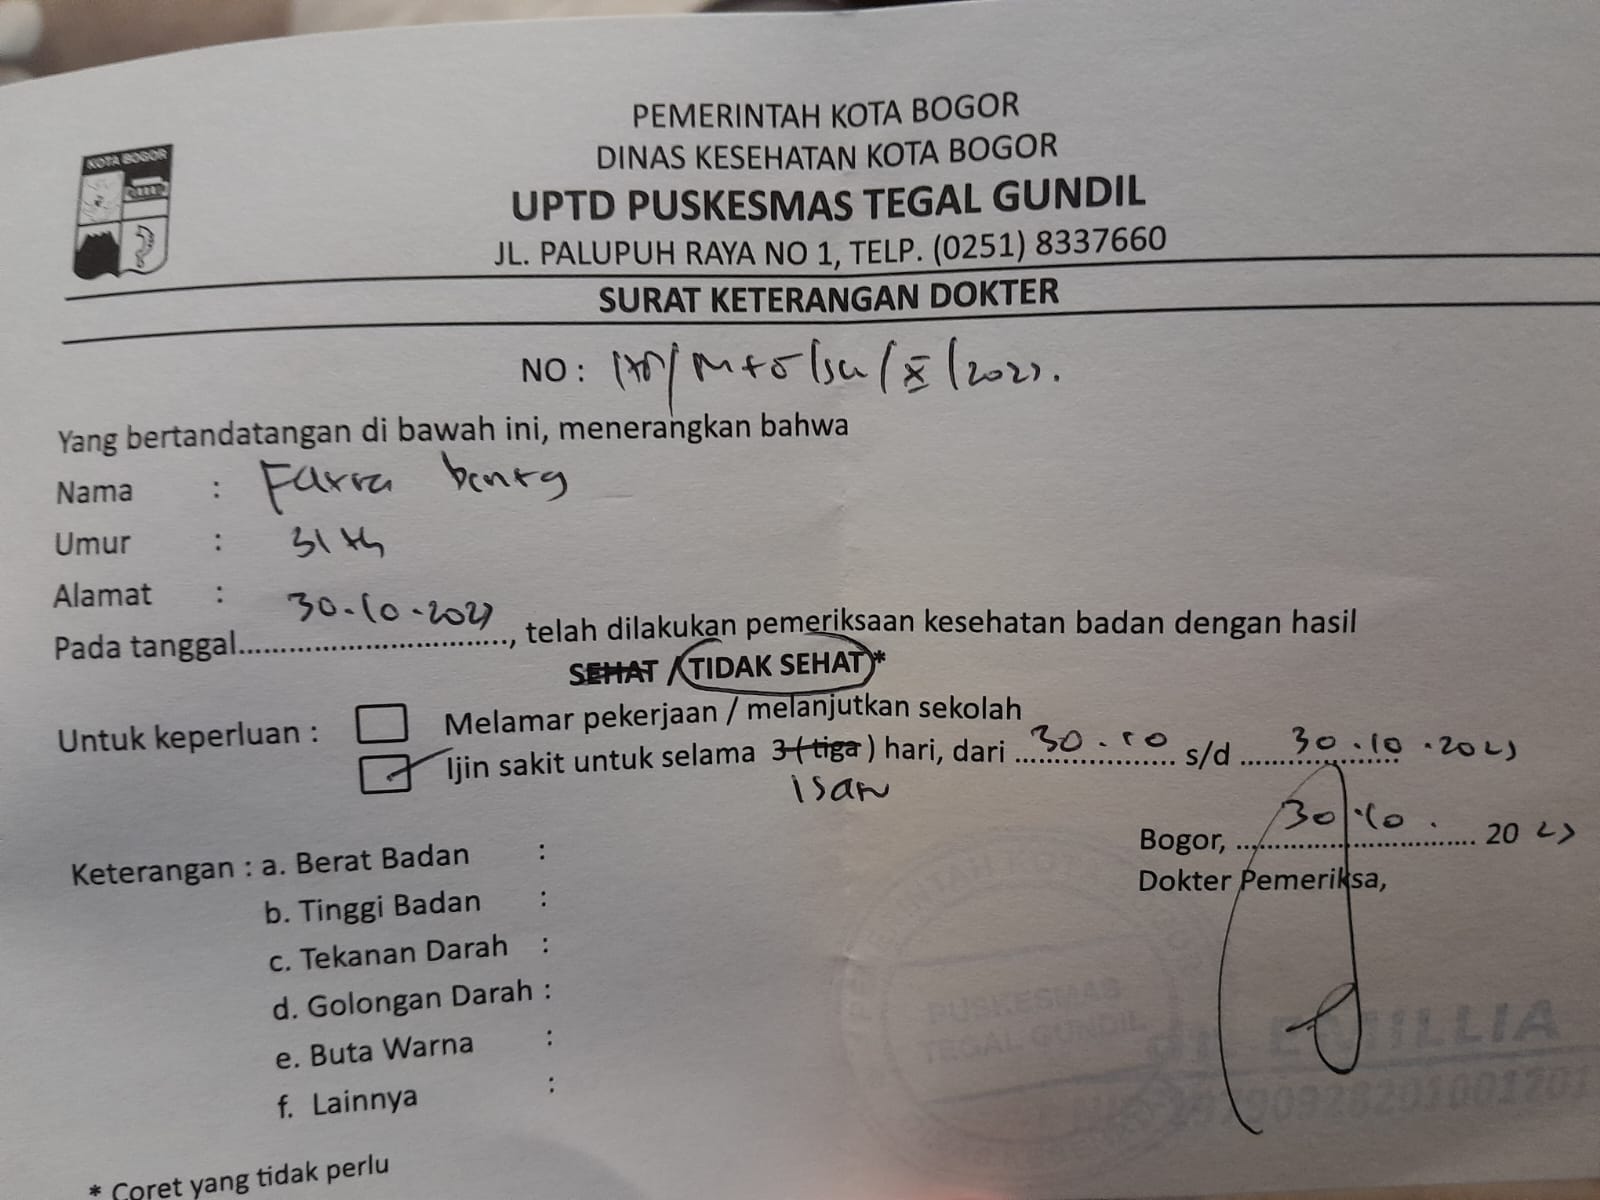 KOTA BOGOR
PEMERINTAH KOTA BOGOR
DINAS KESEHATAN KOTA BOGOR
UPTD PUSKESMAS TEGAL GUNDIL
JL. PALUPUH RAYA NO 1, TELP. (0251) 8337660
SURAT KETERANGAN DOKTER
NO : / X / 2023.
Yang bertandatangan di bawah ini, menerangkan bahwa
Nama : Farra
Umur : 31 th
Alamat :
Pada tanggal 30-10-2023, telah dilakukan pemeriksaan kesehatan badan dengan hasil
SEHAT / TIDAK SEHAT*
Untuk keperluan : Melamar pekerjaan / melanjutkan sekolah
Ijin sakit untuk selama 3 (tiga) hari, dari 30.10 s/d 30.10.2023
Bogor, 30.10. 2023
Dokter Pemeriksa,
Keterangan : a. Berat Badan :
b. Tinggi Badan :
c. Tekanan Darah :
d. Golongan Darah :
e. Buta Warna :
f. Lainnya :
PUSKESMAS
TEGAL GUNDIL
* Coret yang tidak perlu